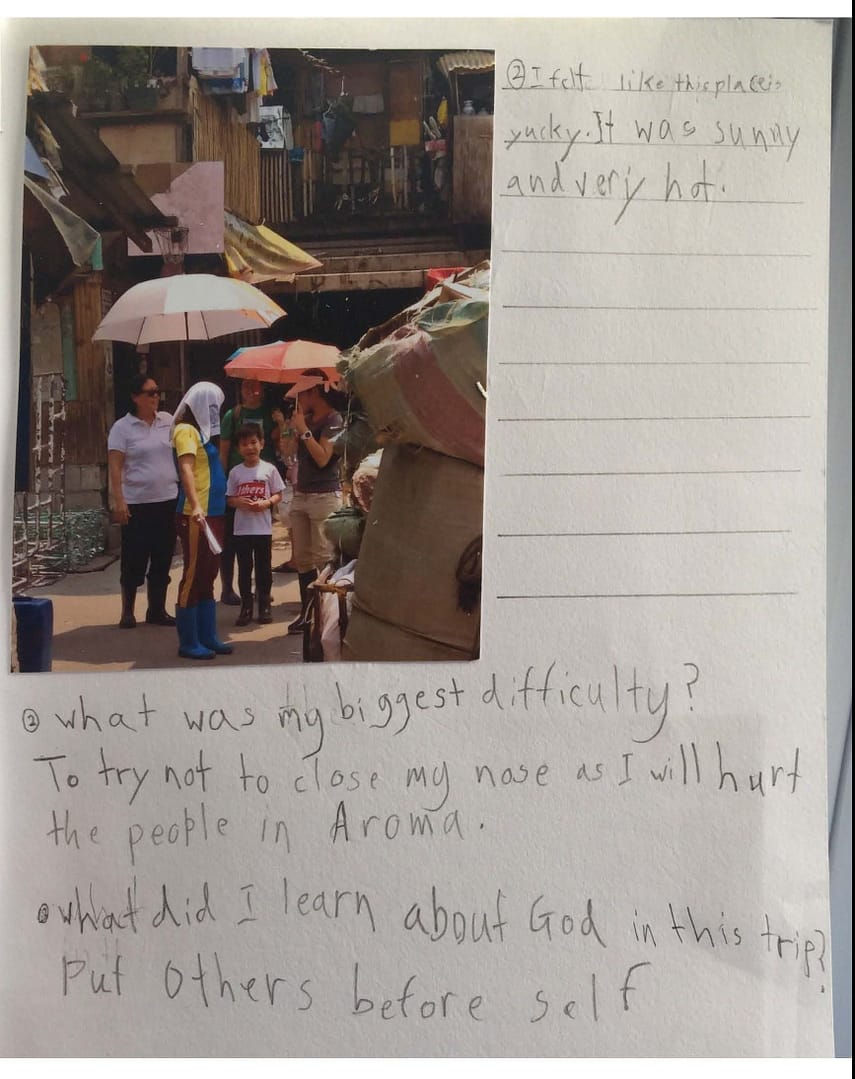 ② I felt like this place is
yucky. It was sunny
and very hot.
thers
② what was my biggest difficulty?
To try not to close my nose as I will hurt
the people in Aroma.
what did I learn about God in this trip?
Put Others before self